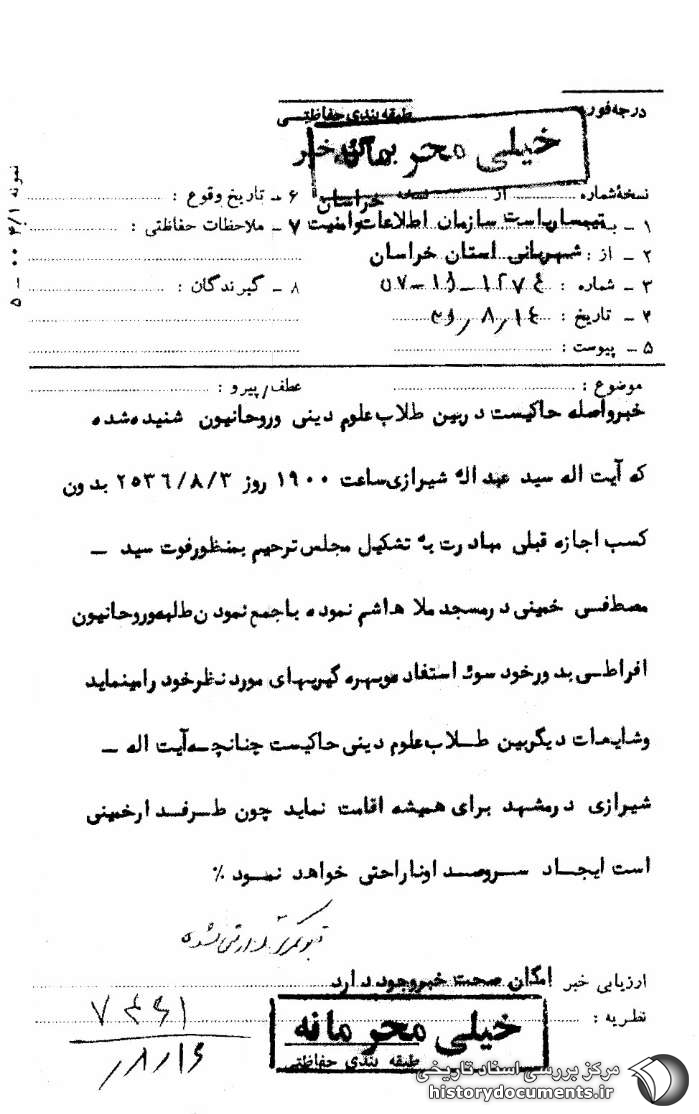 درجه فوریت
طبقه بندی حفاظتی
خیلی محرمانه
برگ خبر
نمونه ۴/۱ ۰۰ - ۵
نسخه شماره از نسخه
۱ - به تیمسار ریاست سازمان اطلاعات و امنیت خراسان
۲ - از : شهربانی استان خراسان
۳ - شماره :
۴ - تاریخ :
۵ - پیوست :
۶ - تاریخ وقوع :
۷ - ملاحظات حفاظتی :
۸ - گیرندگان :
موضوع : عطف/پیرو :
خبرواصله حاکیست دربین طلاب علوم دینی وروحانیون شنیده شده
که آیت اله سید عبداله شیرازی ساعت ۱۹۰۰ روز ۲۵۳۶/۸/۳ بدون
کسب اجازه قبلی مبادرت به تشکیل مجلس ترحیم بمنظور فوت سید -
مصطفی خمینی درمسجد ملا هاشم نموده باجمع نمودن طلبه وروحانیون
افراطی بدورخود سوء استفاده وبهره گیریهای مورد نظرخود رامینماید
وشایعات دیگربین طلاب علوم دینی حاکیست چنانچه آیت اله -
شیرازی درمشهد برای همیشه اقامت نماید چون طرفدارخمینی
است ایجاد سروصدا وناراحتی خواهد نمود ٪
ارزیابی خبر امکان صحت خبر وجود دارد
نظریه :
خیلی محرمانه
طبقه بندی حفاظتی
مرکز بررسی اسناد تاریخی
historydocuments.ir